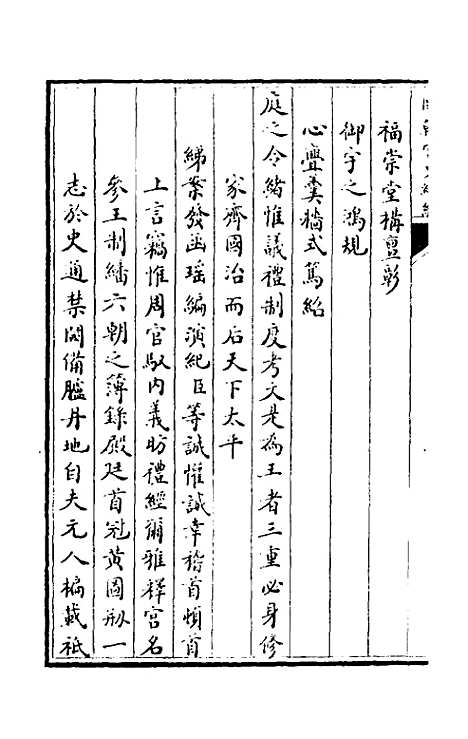 福崇堂構亶彰
御宇之鴻規
心疊羹牆式篤紹
庭之令緒惟議禮制度考文是為王者三重必身修
家齊國治而后天下太平
綈袠發函瑤編演紀臣等誠惟誠幸稽首頓首
上言竊惟周官馭內義昉禮經爾雅釋宮名
參王制繙六朝之簿錄殿廷首冠黃圖
一
志於史通禁闼備臚丹地自夫元人槅載祇